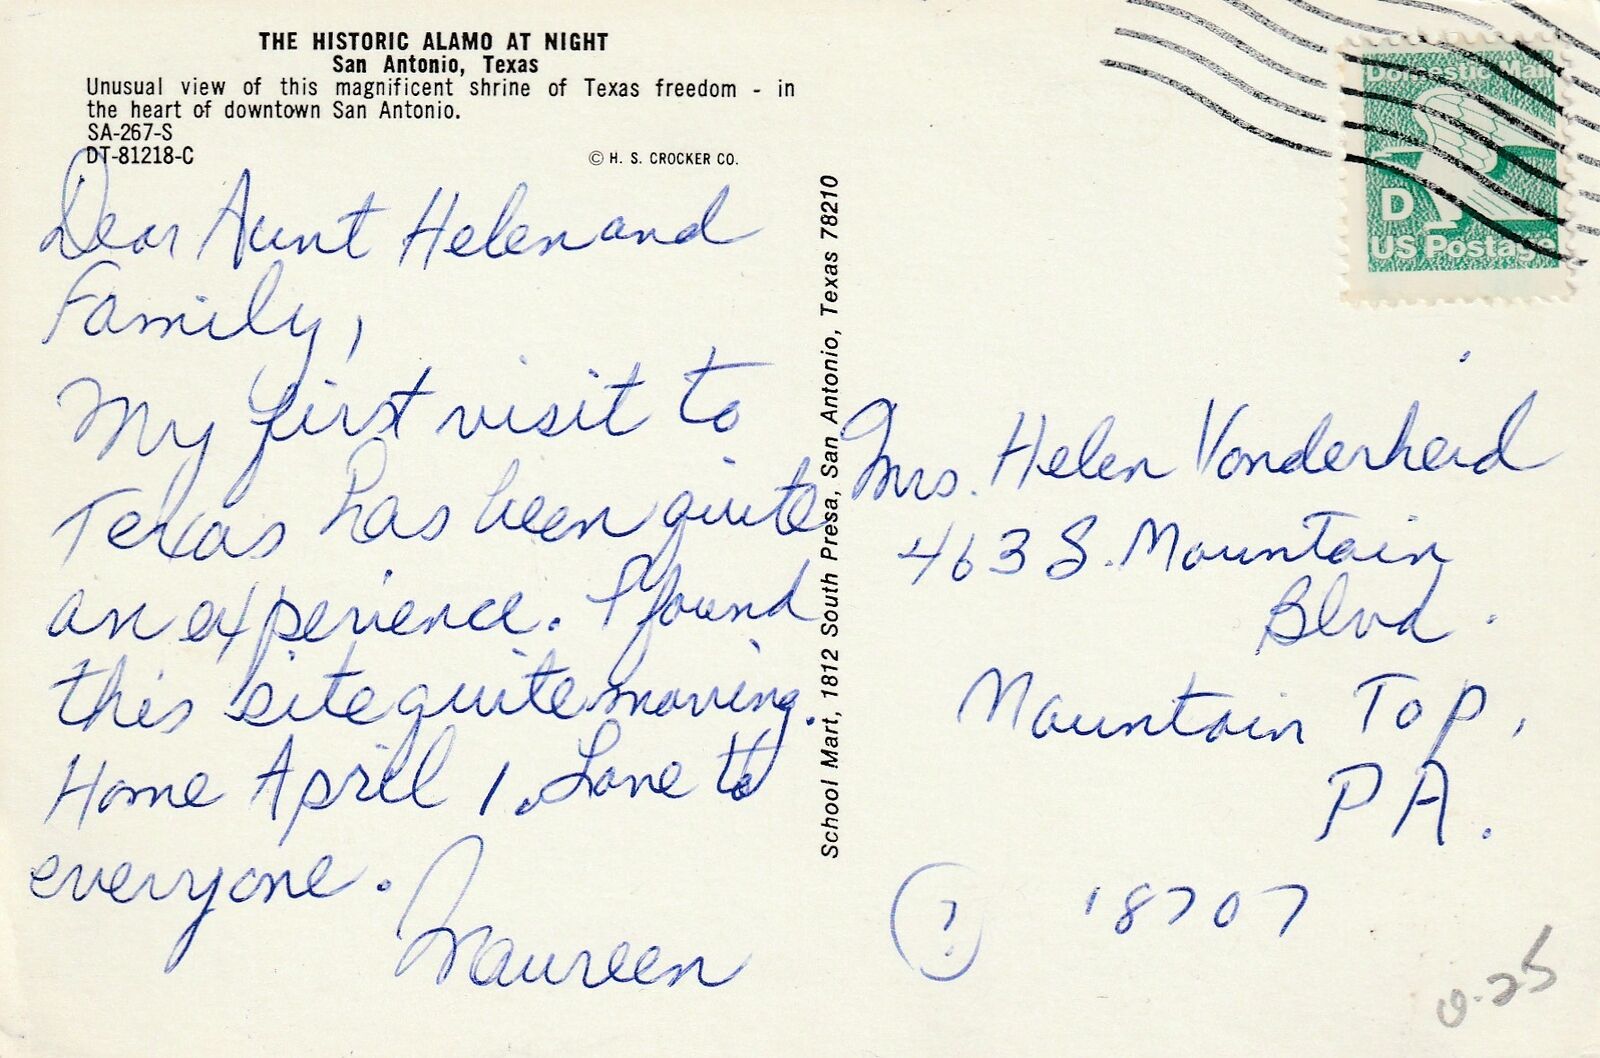 THE HISTORIC ALAMO AT NIGHT
San Antonio, Texas
Unusual view of this magnificent shrine of Texas freedom - in
the heart of downtown San Antonio.
SA-267-S
DT-81218-C
© H. S. CROCKER CO.
Dear Aunt Helen and
Family,
My first visit to
Texas has been quite
an experience. I found
this site quite moving.
Home April 1. Love to
everyone.
Maureen
School Mart, 1812 South Presa, San Antonio, Texas 78210
Domestic Mail
D
US Postage
Mrs. Helen Vonderheid
463 S. Mountain
Blvd.
Mountain Top,
PA.
(?) 18707
0-25